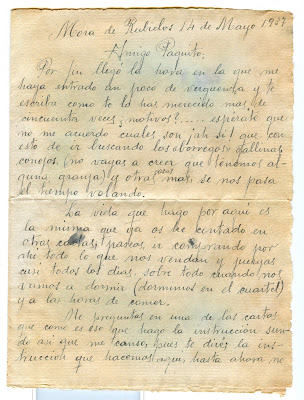 Mora de Rubielos 14 de Mayo 1937
Amigo Paquito:
Por fin llego la hora en la que me
haya entrado un poco de verguenza y te
escriba como te lo has merecido mas de
cincuenta veces ¿motivos?..... esperate que
no me acuerdo cuales son ¡ah si! que con
esto de ir buscando los borregos gallinas
conejos (no vayas a creer que tenemos al-
guna granja) y otras cosas mas, se nos pasa
el tiempo volando.
La vida que hago por aqui es
la misma que ya os he contado en
otras cartas, paseos, ir comprando por
ahi todo lo que nos vendan y juergas
casi todos los dias, sobre todo cuando nos
vamos a dormir (dormimos en el cuartel)
y a las horas de comer.
Me preguntas en una de las cartas
que como es eso que hago la instrucción sien-
do asi que me canso, pues te diré, la ins-
trucción que hacemos aqui, hasta ahora no